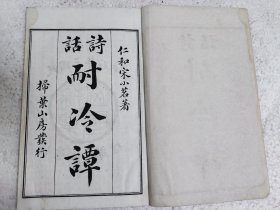 仁和宋小茗著
詩話
耐冷譚
掃葉山房發行